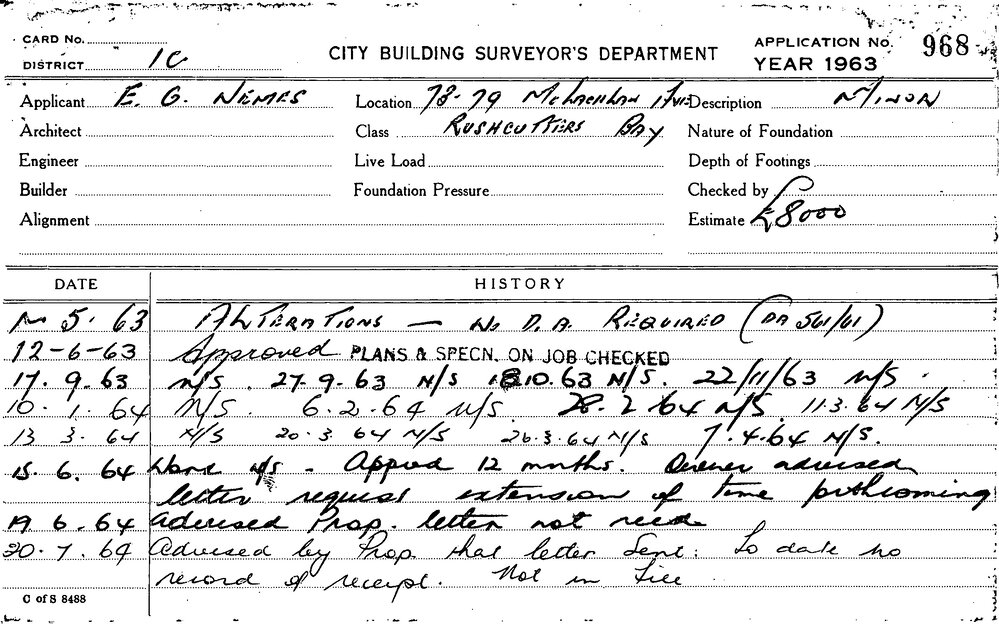 CARD No.
DISTRICT 1C
CITY BUILDING SURVEYOR'S DEPARTMENT
APPLICATION No. 968
YEAR 1963
Applicant E. G. NEMES Location 78-79 McLachlan Ave Description MINOR
Architect Class RUSHCUTTERS BAY Nature of Foundation
Engineer Live Load Depth of Footings
Builder Foundation Pressure Checked by
Alignment Estimate £8000
DATE HISTORY
5. 63 ALTERATIONS — No D.A. REQUIRED (DA 561/61)
12-6-63 Approved PLANS & SPECN. ON JOB CHECKED
17. 9. 63 N/S. 27-9-63 N/S 18.10.63 N/S. 22/11/63 N/S.
10. 1. 64 N/S. 6.2.64 N/S 28.2.64 N/S. 11.3.64 N/S
13 3. 64 N/S 20.3.64 N/S 26.3.64 N/S 7.4.64 N/S.
15. 6. 64 Work N/S - Approd 12 months. Owner advised
letter request extension of time forthcoming
19 6. 64 Advised Prop. letter not recd
20. 7. 64 Advised by Prop. that letter sent. To date no
record of receipt. Not in File
C of S 8488